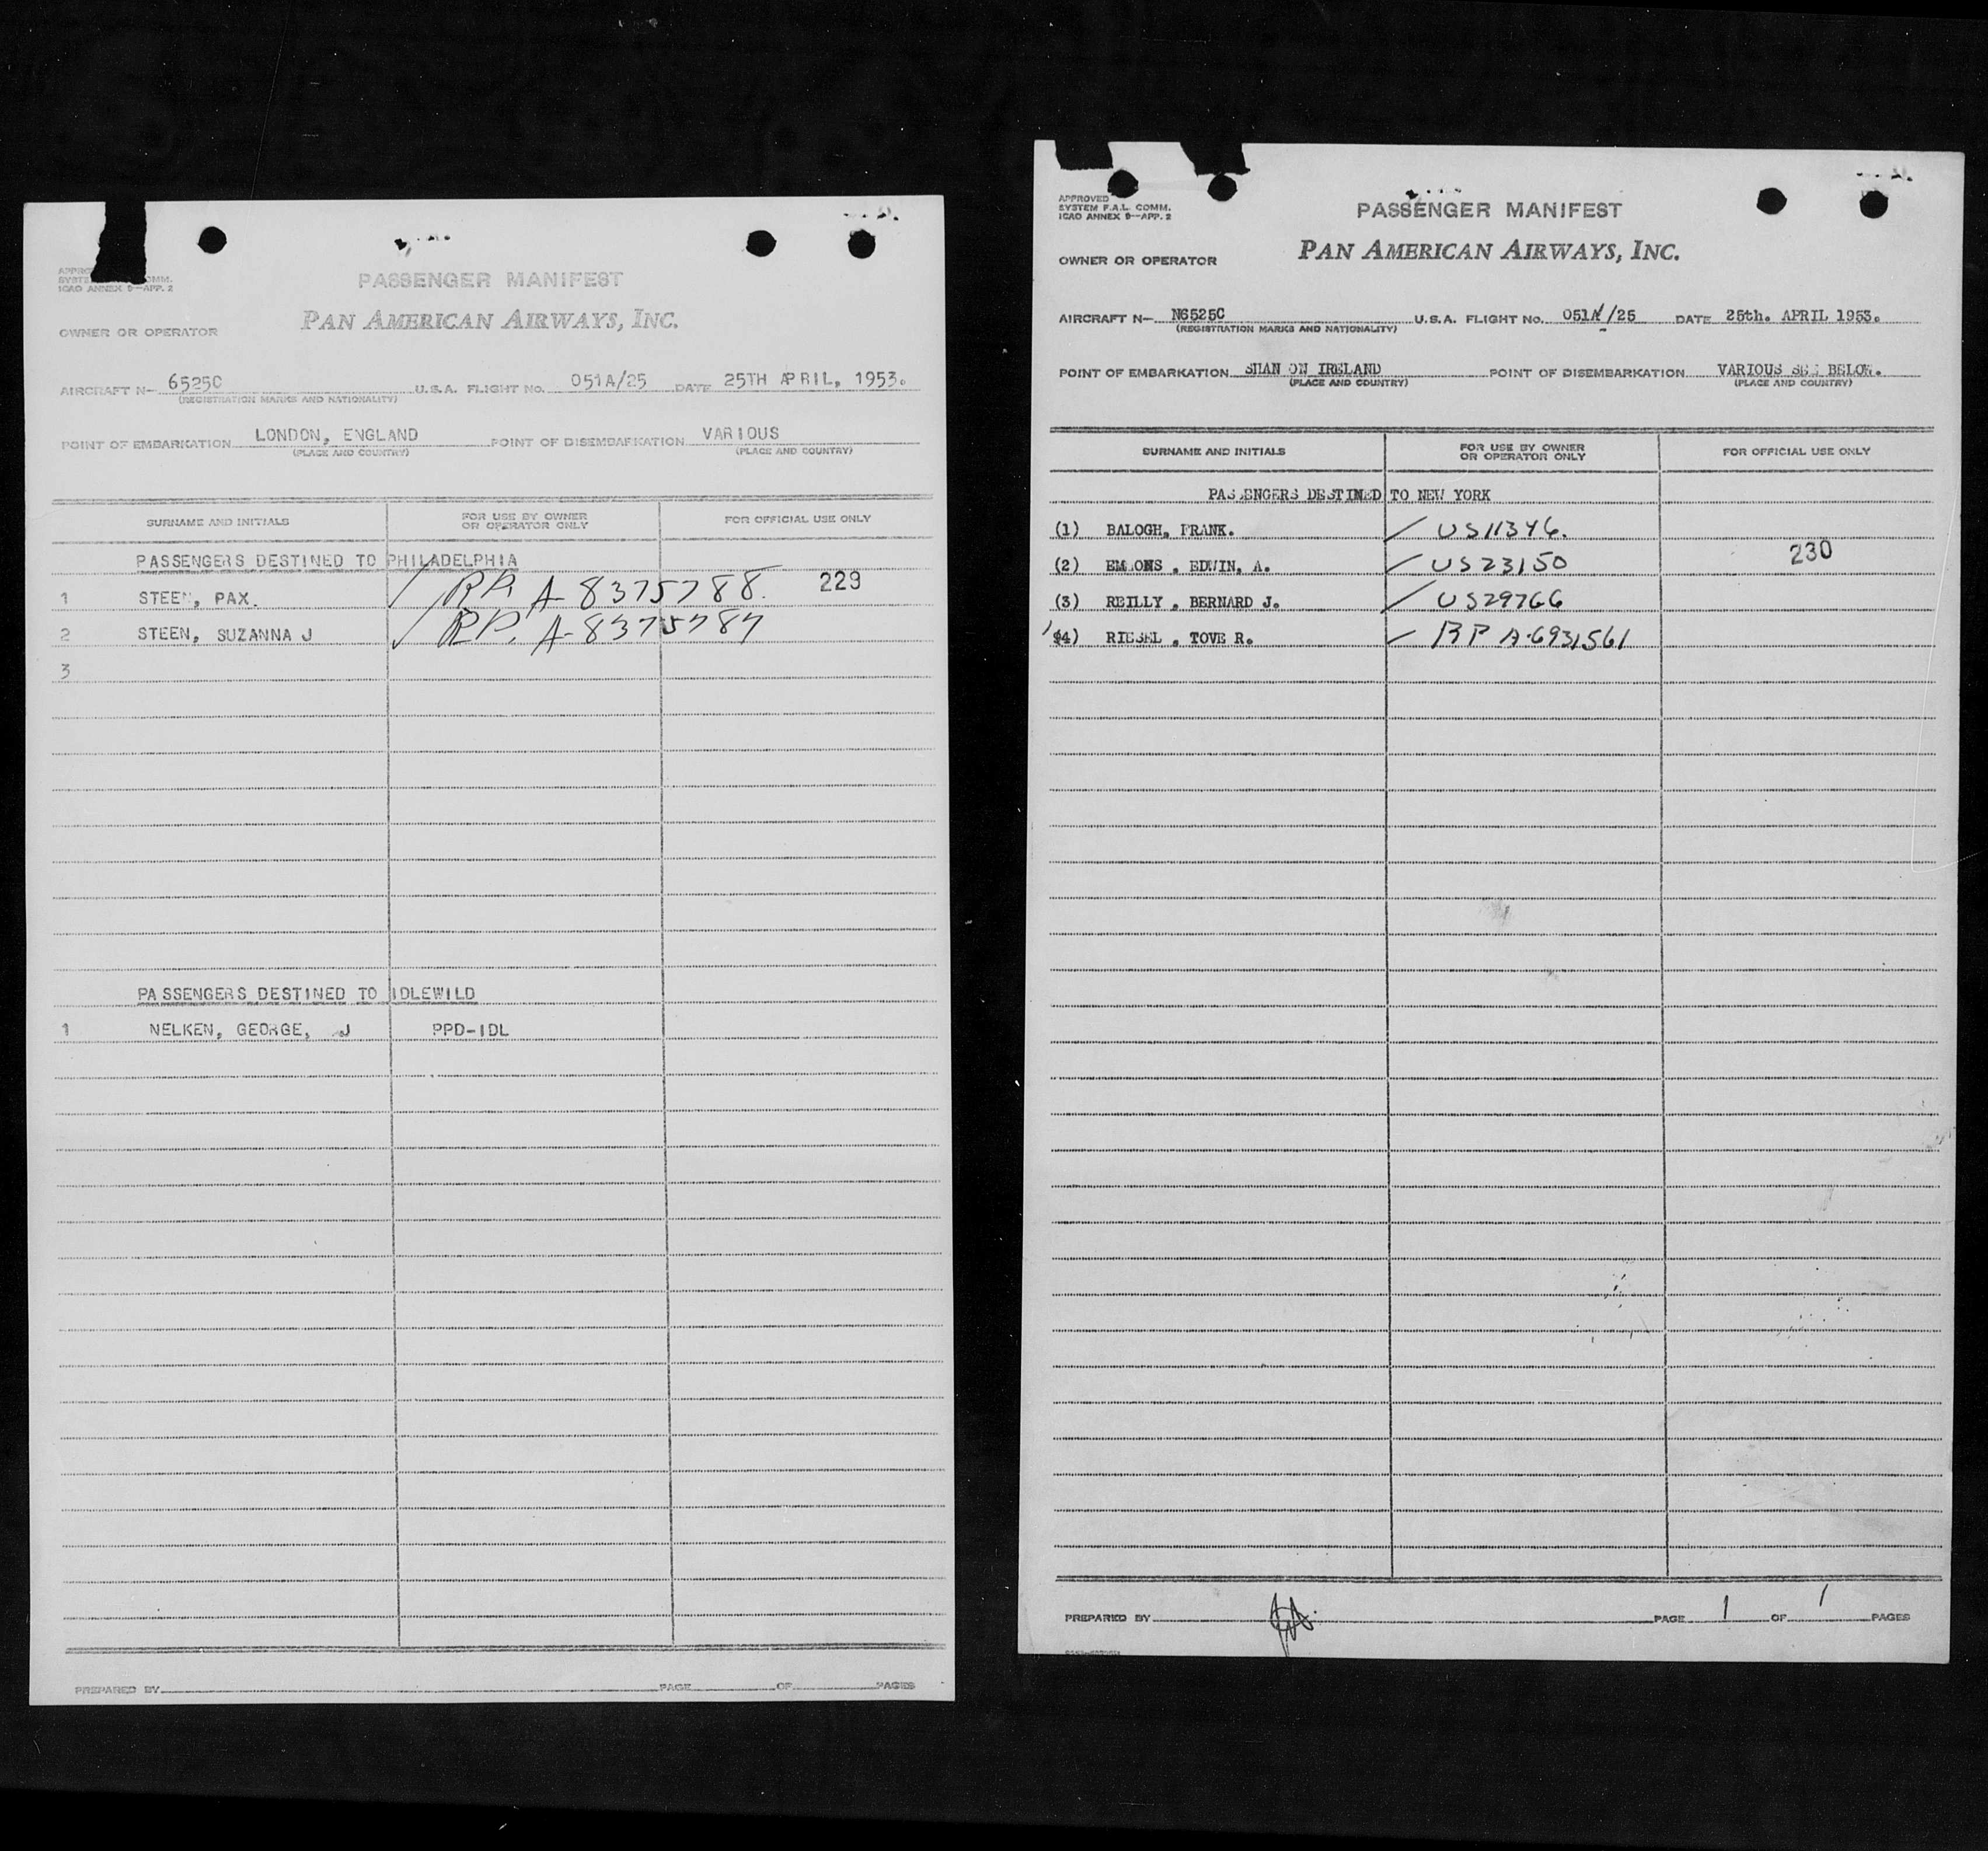 SYSTEM F.A.L. COMM.
ICAO ANNEX 9—APP. 2
PASSENGER MANIFEST
OWNER OR OPERATOR
PAN AMERICAN AIRWAYS, INC.
AIRCRAFT N— 6525C U.S.A. FLIGHT NO. 051A/25 DATE 25TH APRIL, 1953.
(REGISTRATION MARKS AND NATIONALITY)
POINT OF EMBARKATION LONDON, ENGLAND POINT OF DISEMBARKATION VARIOUS
(PLACE AND COUNTRY) (PLACE AND COUNTRY)
SURNAME AND INITIALS FOR USE BY OWNER OR OPERATOR ONLY FOR OFFICIAL USE ONLY
PASSENGERS DESTINED TO PHILADELPHIA
1 STEEN, PAX. RP. A-8375788. 229
2 STEEN, SUZANNA J RP. A-8375787
3
PASSENGERS DESTINED TO IDLEWILD
1 NELKEN, GEORGE, J PPD-IDL
PREPARED BY PAGE OF PAGES
APPROVED
SYSTEM F.A.L. COMM.
ICAO ANNEX 9—APP. 2
PASSENGER MANIFEST
OWNER OR OPERATOR
PAN AMERICAN AIRWAYS, INC.
AIRCRAFT N— N6525C U.S.A. FLIGHT NO. 051A/25 DATE 25th. APRIL 1953.
(REGISTRATION MARKS AND NATIONALITY)
POINT OF EMBARKATION SHAN ON IRELAND POINT OF DISEMBARKATION VARIOUS SEE BELOW.
(PLACE AND COUNTRY) (PLACE AND COUNTRY)
SURNAME AND INITIALS FOR USE BY OWNER OR OPERATOR ONLY FOR OFFICIAL USE ONLY
PASSENGERS DESTINED TO NEW YORK
(1) BALOGH, FRANK. US11346.
(2) EMMONS, EDWIN, A. US23150 230
(3) REILLY, BERNARD J. US29766
(4) RIESEL, TOVE R. RP A-6931561
PREPARED BY PAGE 1 OF 1 PAGES